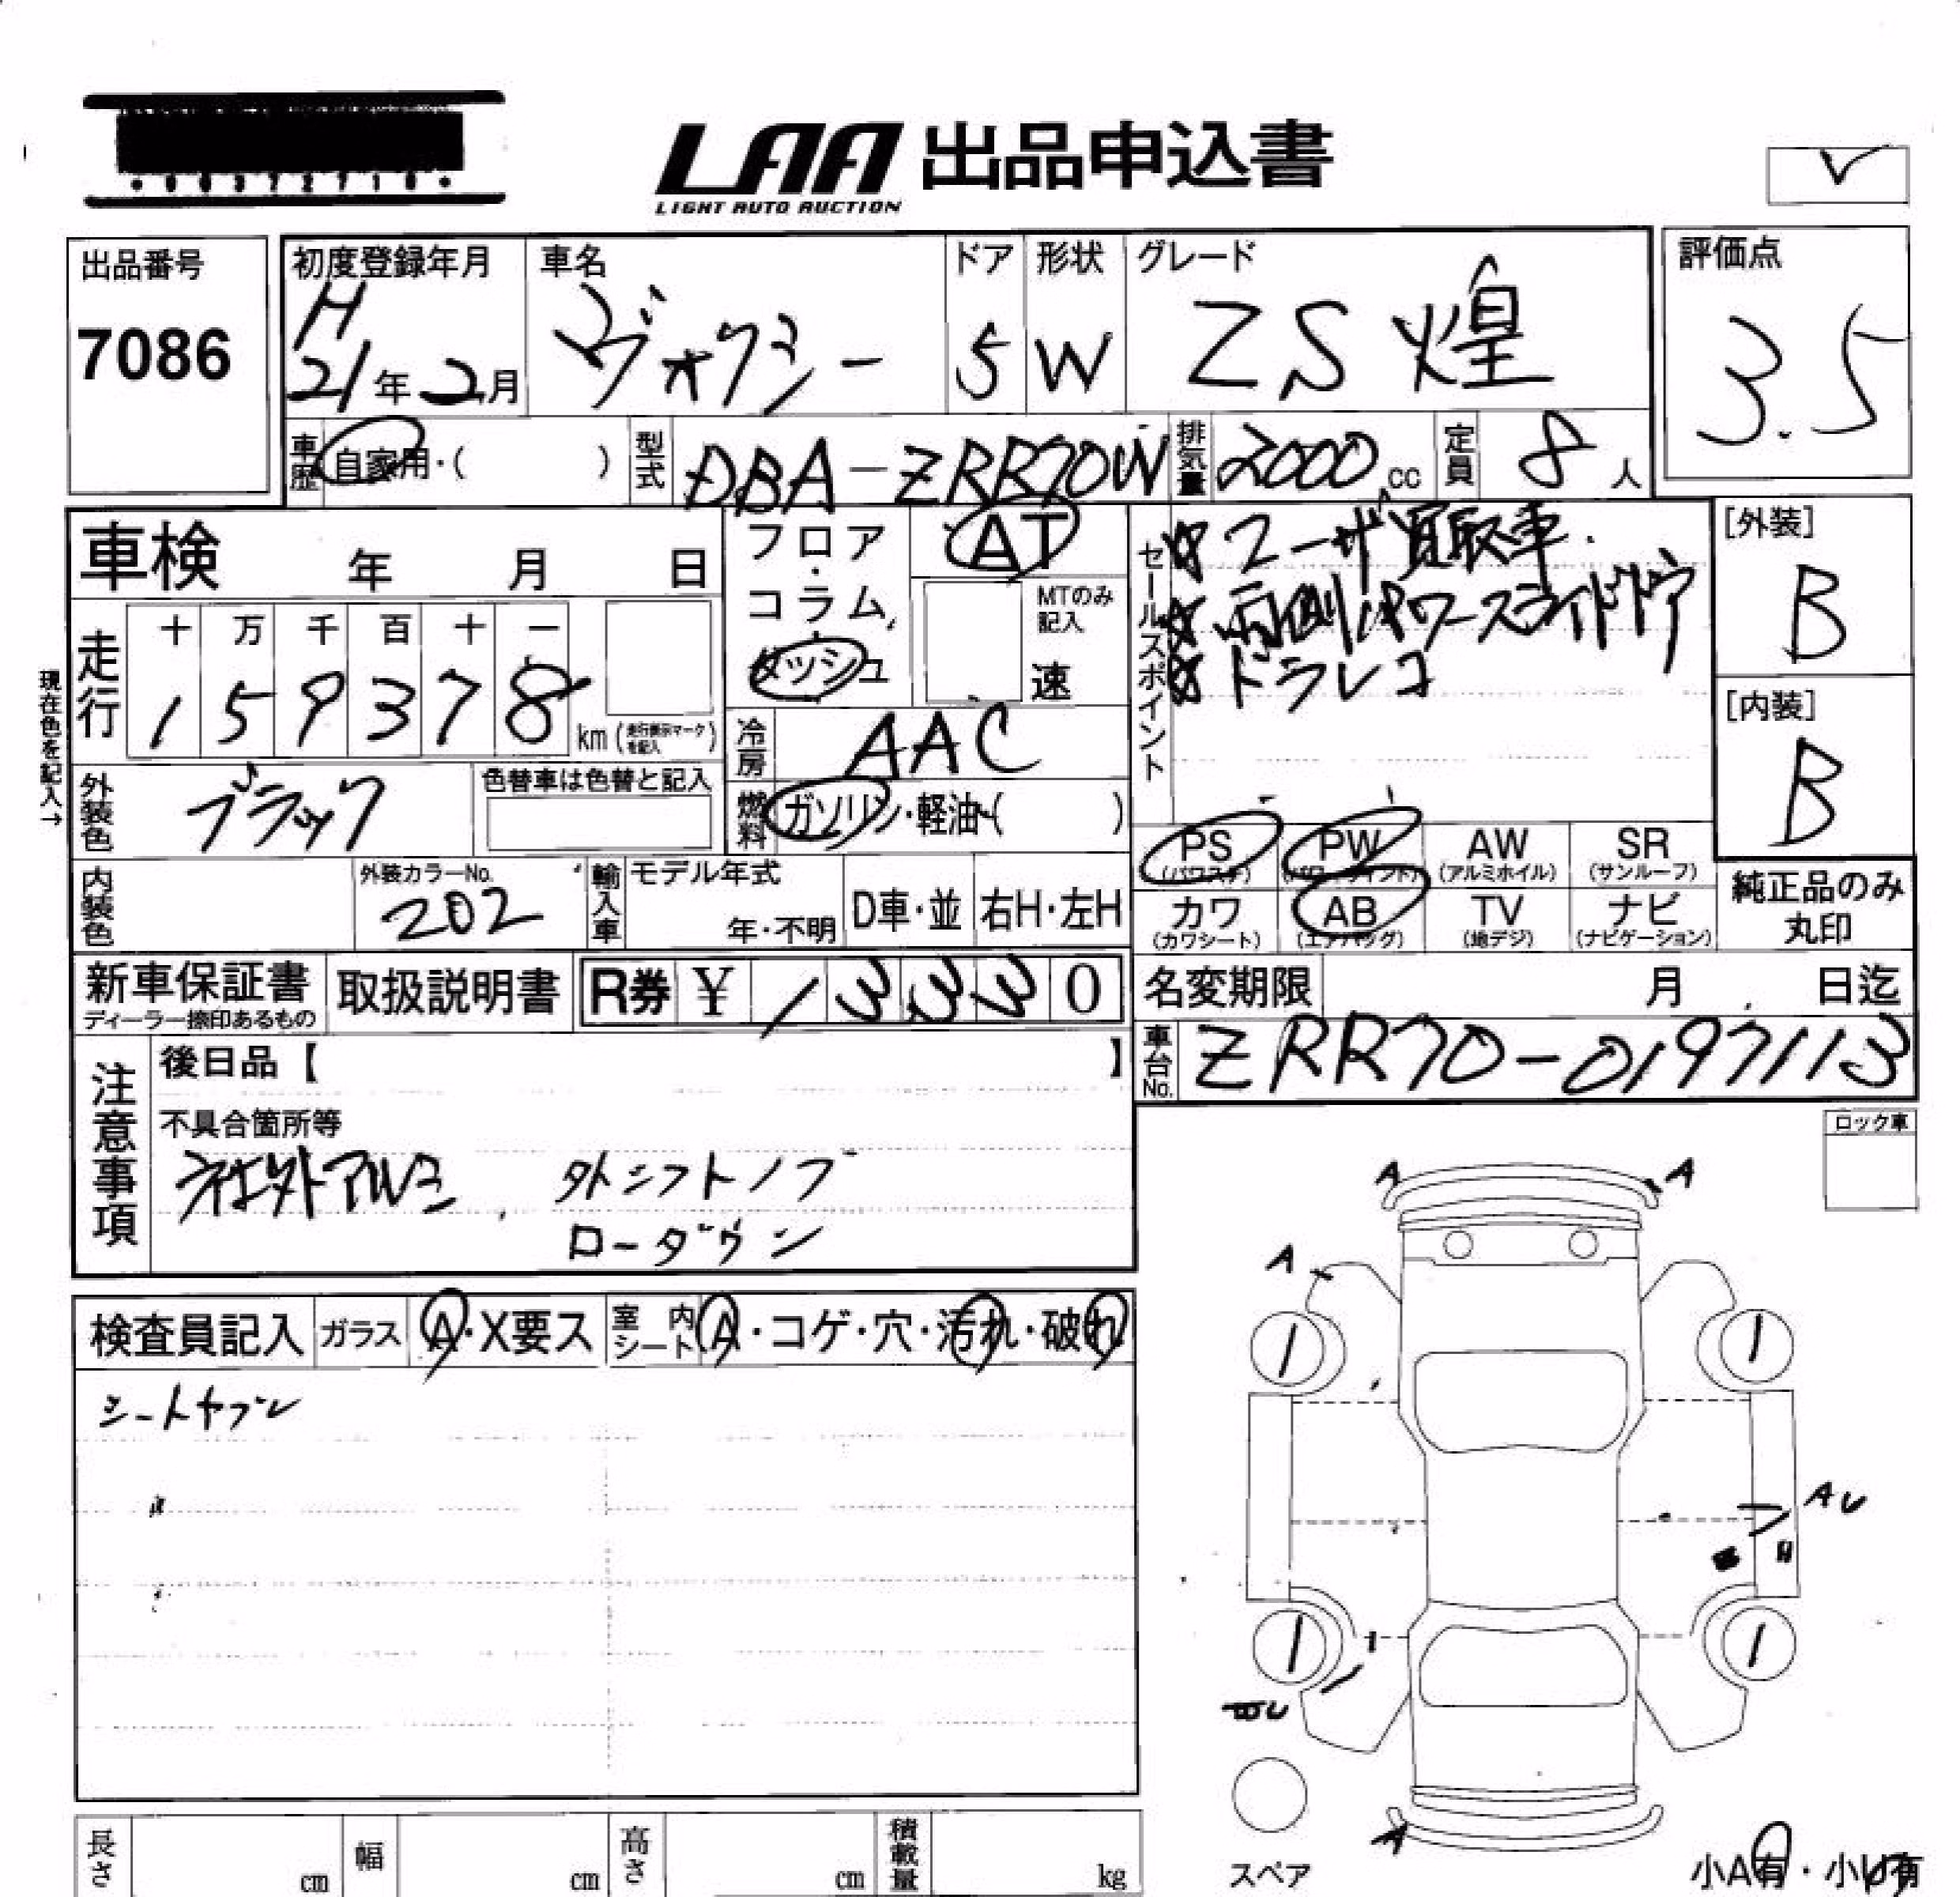 LAA 出品申込書
LIGHT AUTO AUCTION
出品番号
7086
初度登録年月
H
21年2月
車名
ヴォクシー
ドア
5
形状
W
グレード
ZS 煌
評価点
3.5
車歴
自家用・( )
型式
DBA-ZRR70W
排気量
2000cc
定員
8人
車検 年 月 日
走行
十 万 千 百 十 一
1 5 9 3 7 8
km(走行表示マークを記入)
現在色を記入→
外装色
ブラック
色替車は色替と記入
内装色
外装カラーNo.
202
フロア・コラム・ダッシュ
AT
MTのみ記入
速
冷房
AAC
燃料
ガソリン・軽油・( )
輸入車
モデル年式
年・不明
D車・並
右H・左H
セールスポイント
☆ユーザー買取車
☆両側パワースライドドア
☆ドラレコ
[外装]
B
[内装]
B
PS
(パワステ)
PW
(パワーウィンド)
AW
(アルミホイル)
SR
(サンルーフ)
カワ
(カワシート)
AB
(エアバッグ)
TV
(地デジ)
ナビ
(ナビゲーション)
純正品のみ
丸印
新車保証書
ディーラー捺印あるもの
取扱説明書
R券 ¥ 1 3 3 3 0
名変期限 月 日迄
車台No.
ZRR70-0197113
注意事項
後日品【 】
不具合箇所等
社外アルミ 外シフトノブ
ローダウン
ロック車
検査員記入
ガラス
A・X要ス
室内シート
A・コゲ・穴・汚れ・破れ
シートヤブレ
A
A
A
AU
A
スペア
小A有・小U有
長さ cm
幅 cm
高さ cm
積載量 kg